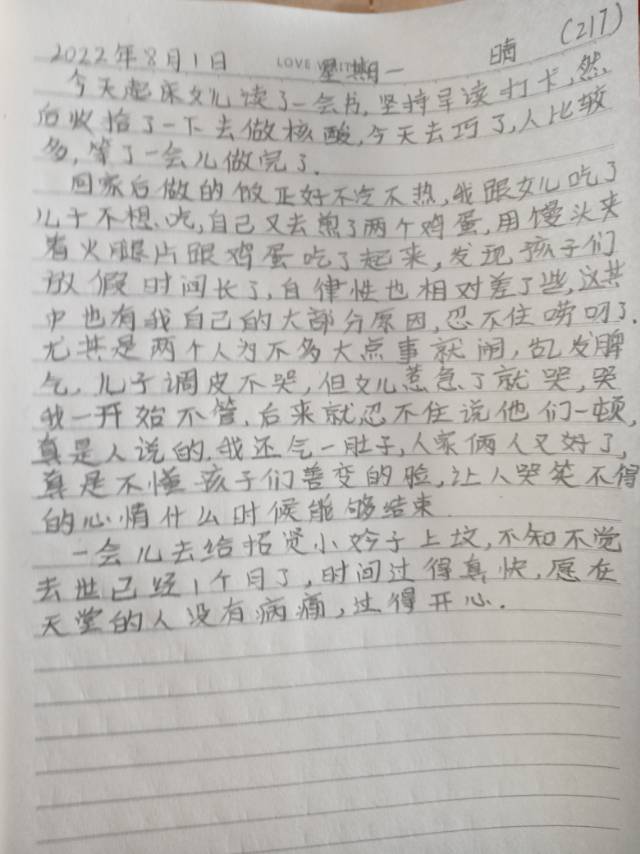 (217)
2022年8月1日 LOVE 星期一 晴
今天起床女儿读了一会书,坚持早读打卡,然
后收拾了一下去做核酸,今天去巧了,人比较
多,等了一会儿做完了.
回家后做的饭正好不冷不热,我跟女儿吃了
儿子不想吃,自己又去煎了两个鸡蛋,用馒头夹
着火腿片跟鸡蛋吃了起来,发现孩子们
放假时间长了,自律性也相对差了些,这其
中也有我自己的大部分原因,忍不住唠叨了.
尤其是两个人为不多大点事就闹,乱发脾
气,儿子调皮不哭,但女儿惹急了就哭,哭
我一开始不管,后来就忍不住说他们一顿,
真是人说的,我还气一肚子,人家俩人又好了,
真是不懂孩子们善变的脸,让人哭笑不得
的心情什么时候能够结束
一会儿去给招贤小妗子上坟,不知不觉
去世已经1个月了,时间过得真快,愿在
天堂的人没有病痛,过得开心.